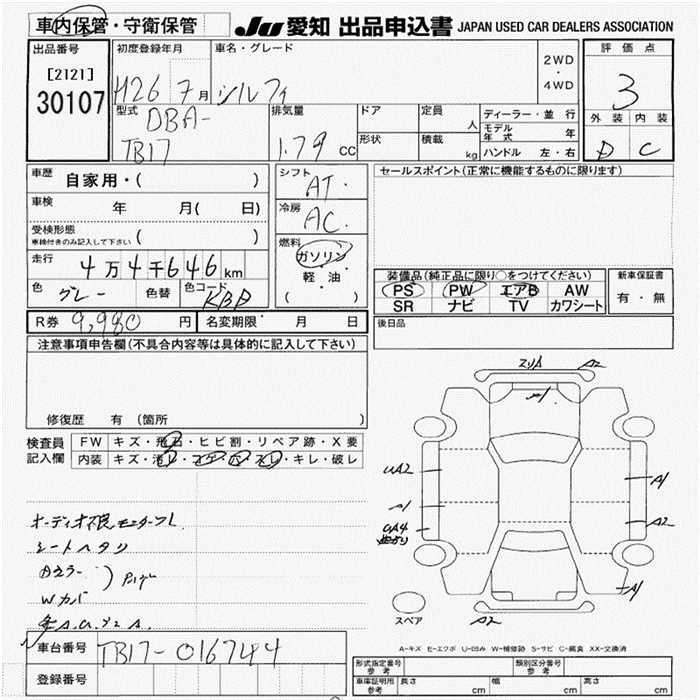 車内保管・守衛保管
JU 愛知 出品申込書 JAPAN USED CAR DEALERS ASSOCIATION
出品番号
[2121]
30107
初度登録年月
H26 7月
車名・グレード
シルフィ
2WD
・
4WD
評価点
3
外装 内装
D C
型式
DBA-
TB17
排気量
1.79 CC
ドア
形状
定員
人
積載
kg
ディーラー・並行
モデル年式 年
ハンドル 左・右
車歴 自家用・( )
車検 年 月( 日)
受検形態
車検付きのみ記入して下さい ( )
走行 4万4千646km
色 グレー 色替 色コード KBD
シフト
AT
冷房
AC
燃料
ガソリン
軽・油
・
( )
セールスポイント(正常に機能するものに限ります)
装備品(純正品に限り○をつけてください)
PS PW エアB AW
SR ナビ TV カワシート
新車保証書
有・無
R券 9,980 円 名変期限 月 日
後日品
注意事項申告欄(不具合内容等は具体的に記入して下さい)
修復歴 有 (箇所 )
検査員
記入欄
FW キズ・飛石・ヒビ割・リペア跡・X要
内装 キズ・汚レ・コゲ・穴・スレ・キレ・破レ
A2
UA2
A1
A2
UA4
A1
A2
スペア
オーディオ不良モニターフレ
シートヘタリ
Wカバ
A-キズ E-エクボ U-凹み W-補修跡 S-サビ C-腐食 XX-交換済
車台番号 TB17-016744
登録番号
形式指定番号
参考
類別区分番号
参考
車庫証明用
参考
長さ cm 幅 cm 高さ cm